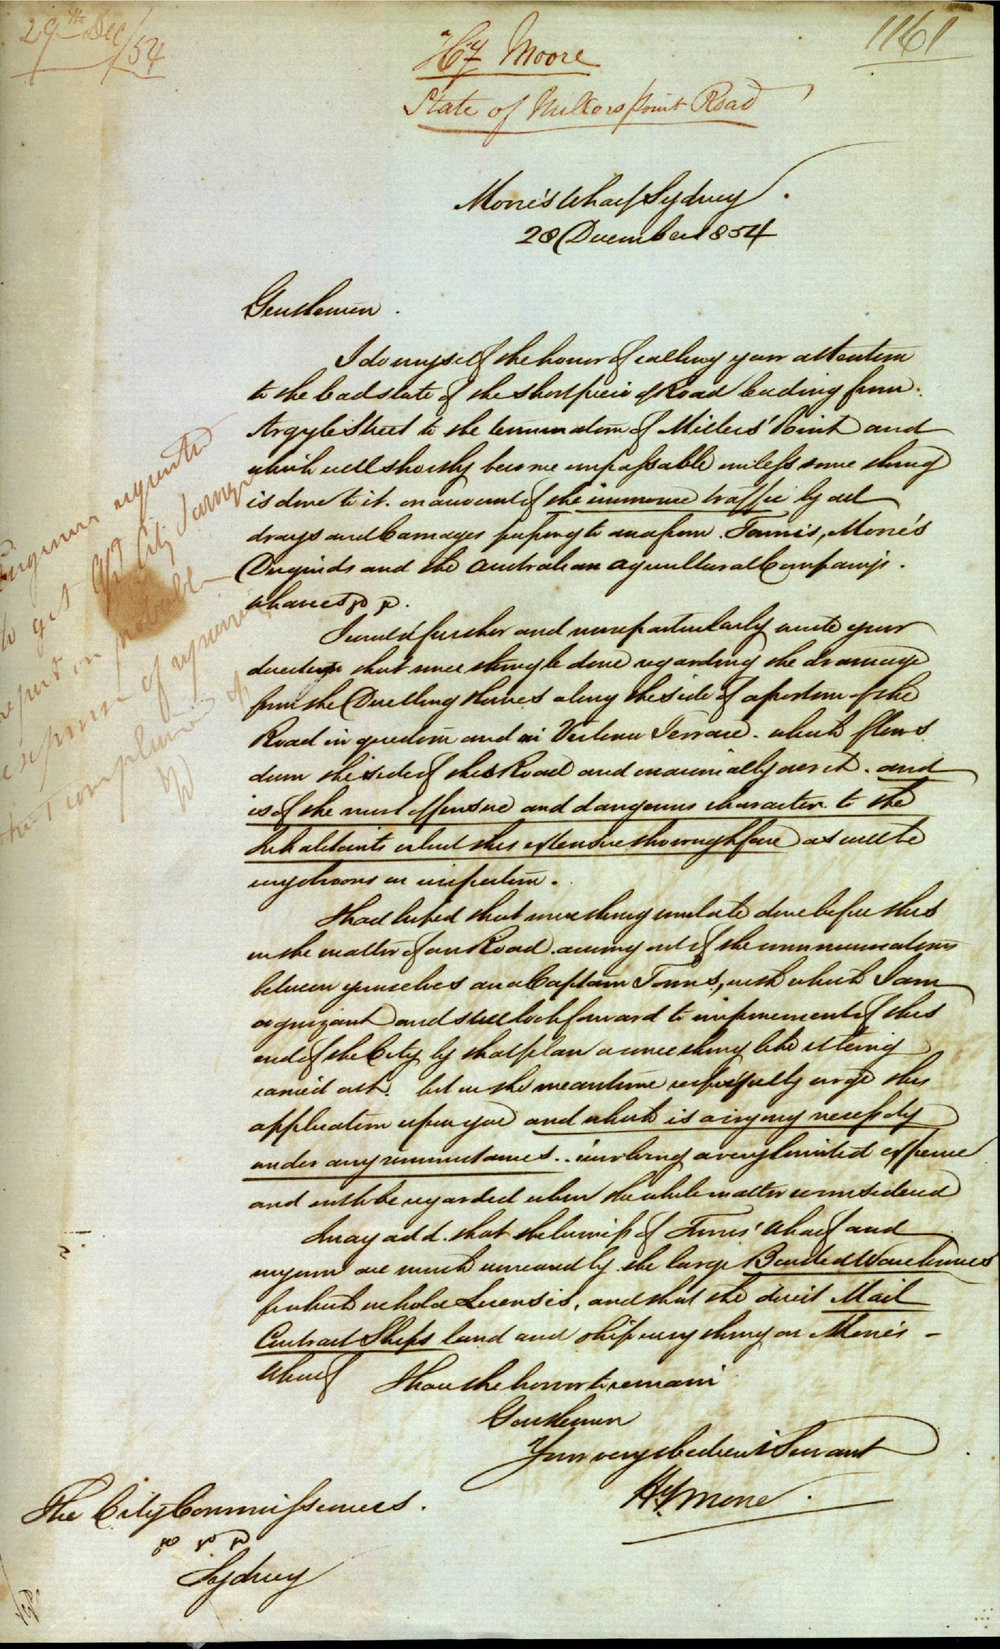 29th Dec/54
1161
Hy Moore
State of Millers point Road
Moore's Wharf Sydney
28 December 1854
Gentlemen.
I do myself the honor of calling your attention
to the bad state of the short piece of Road leading from
Argyle Street to the termination of Millers' Point and
which will shortly become impassable unless some thing
is done to it. on account of the immense traffic by all
drays and Carriages passing to and from Towns's, Moore's
Duguids and the Australian Agricultural Company's.
wharves &c &c.
I would further and more particularly invite your
direction that some thing be done regarding the drainage
from the Dwelling Houses along the side of a portion of the
Road in question and in Terrace. which flows
down the side of this Road and occasionally across it. and
is of the most offensive and dangerous character to the
Inhabitants about this extensive thoroughfare as will be
on inspection.
I had hoped that some thing would be done before this
in the matter of our Road arising out of the communications
between yourselves and Captain Towns, with which I am
cognizant and still look forward to improvement of this
end of the City by that plan or some thing like it being
carried out. but in the meantime respectfully urge this
application upon you and which is a crying necessity
under any circumstances.. involving a very limited expense
and will be regarded when the whole matter is considered
I may add. that the business of Towns' Wharf and
my own are much increased by the large Bonded Warehouses
for which we hold Licenses, and that the direct Mail
Contract Ships land and ship every thing on Moore's -
Wharf
I have the honor to remain
Gentlemen
Your very obedient Servant
Hy Moore.
The City Commissioners.
&c &c &c
Sydney
Engineer requested
to get City Surveyor
report on probable
expense of repairing
the complained of